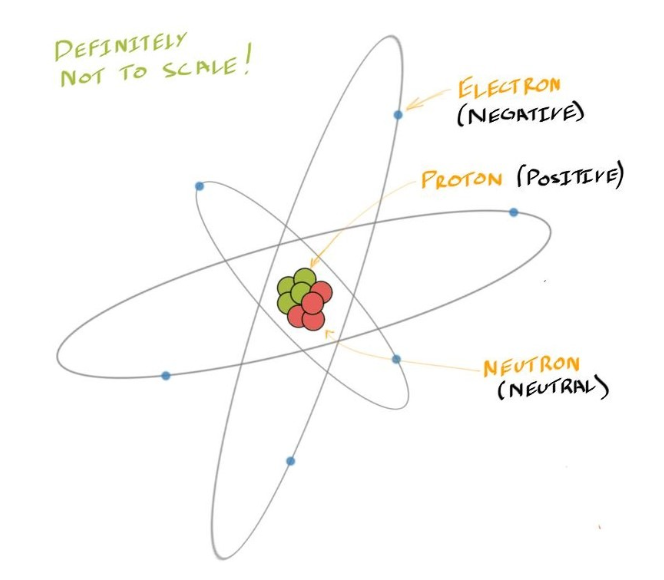 DEFINITELY
NOT TO SCALE!
ELECTRON
(NEGATIVE)
PROTON (POSITIVE)
NEUTRON
(NEUTRAL)